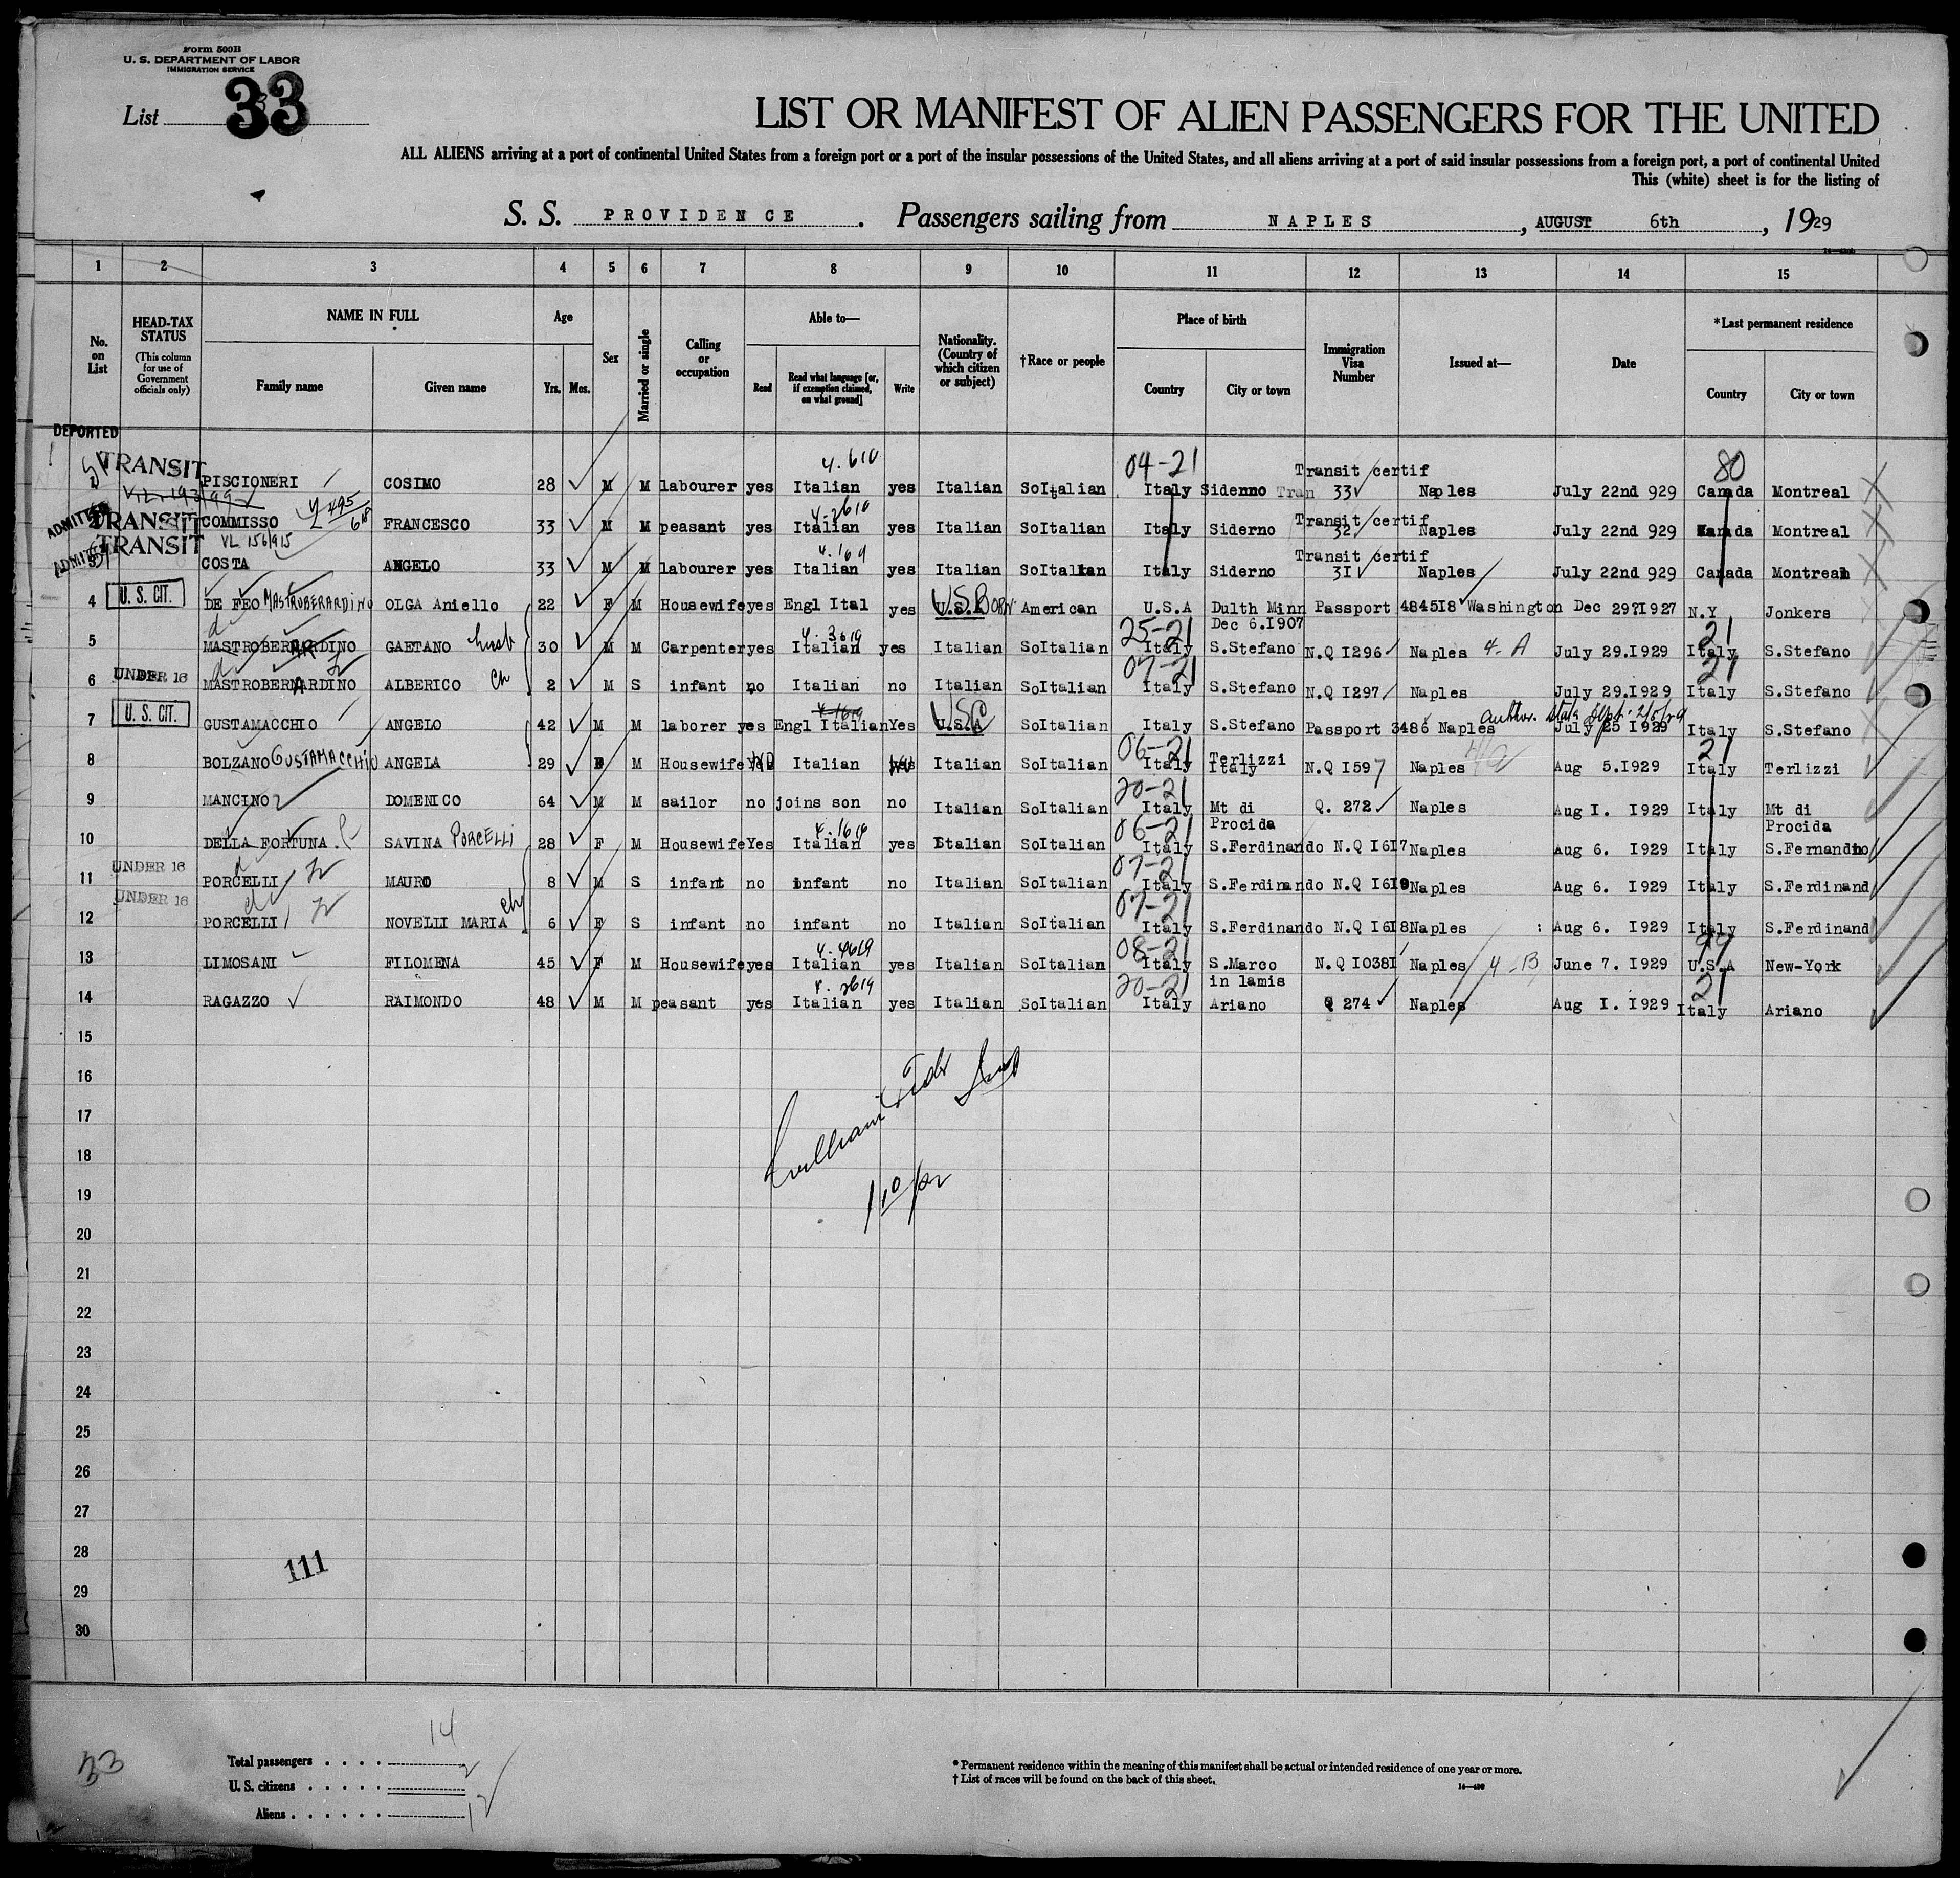 Form 500B
U. S. DEPARTMENT OF LABOR
IMMIGRATION SERVICE
List 33
LIST OR MANIFEST OF ALIEN PASSENGERS FOR THE UNITED
ALL ALIENS arriving at a port of continental United States from a foreign port or a port of the insular possessions of the United States, and all aliens arriving at a port of said insular possessions from a foreign port, a port of continental United
This (white) sheet is for the listing of
S. S. PROVIDENCE. Passengers sailing from NAPLES, AUGUST 6th, 1929
1 2 3 4 5 6 7 8 9 10 11 12 13 14 15
No. on List
HEAD-TAX STATUS (This column for use of Government officials only)
NAME IN FULL Family name Given name
Age Yrs. Mos.
Sex
Married or single
Calling or occupation
Able to— Read Read what language [or, if exemption claimed, on what ground] Write
Nationality. (Country of which citizen or subject)
†Race or people
Place of birth Country City or town
Immigration Visa Number
Issued at—
Date
*Last permanent residence Country City or town
DEPORTED
4.610 04-21 Transit certif 80
TRANSIT PISCIONERI COSIMO 28 M M labourer yes Italian yes Italian SoItalian Italy Siderno Tran 33 Naples July 22nd 929 Canada Montreal
4-2610 Transit certif
ADMITTED TRANSIT COMMISSO FRANCESCO 33 M M peasant yes Italian yes Italian SoItalian Italy Siderno 32 Naples July 22nd 929 Canada Montreal
VL 156/915 4.169 Transit certif
ADMITTED TRANSIT COSTA ANGELO 33 M M labourer yes Italian yes Italian SoItalian Italy Siderno 31 Naples July 22nd 929 Canada Montreal
4 U. S. CIT. DE FEO MASTROBERARDINO OLGA Aniello 22 F M Housewife yes Engl Ital yes U.S.A USBORN American U.S.A Dulth Minn Passport 484518 Washington Dec 29?1927 N.Y Jonkers
Dec 6.1907
4.3619 25-21 21
5 MASTROBERARDINO GAETANO husb 30 M M Carpenter yes Italian yes Italian SoItalian Italy S.Stefano N.Q 1296 Naples 4-A July 29.1929 Italy S.Stefano
07-21 21
6 UNDER 16 MASTROBERNARDINO ALBERICO ch 2 M S infant no Italian no Italian SoItalian Italy S.Stefano N.Q 1297 Naples July 29.1929 Italy S.Stefano
USC author. State Dept. 2/5/29
7 U. S. CIT. GUSTAMACCHIO ANGELO 42 M M laborer yes Engl Italian Yes U.S.A SoItalian Italy S.Stefano Passport 3486 Naples July 25 1929 Italy S.Stefano
06-21 21
8 BOLZANO GUSTAMACCHIO ANGELA 29 F M Housewife NO Italian NO Italian SoItalian Italy Terlizzi Italy N.Q 1597 Naples Aug 5.1929 Italy Terlizzi
20-21
9 MANCINO DOMENICO 64 M M sailor no joins son no Italian SoItalian Italy Mt di Procida Q. 272 Naples Aug I. 1929 Italy Mt di Procida
4.1619 06-21
10 DELLA FORTUNA SAVINA PORCELLI 28 F M Housewife Yes Italian yes Italian SoItalian Italy S.Ferdinando N.Q 1617 Naples Aug 6. 1929 Italy S.Fernandino
07-21
11 UNDER 16 PORCELLI MAURO 8 M S infant no infant no Italian SoItalian Italy S.Ferdinando N.Q 1619 Naples Aug 6. 1929 Italy S.Ferdinand
07-21
12 UNDER 16 PORCELLI NOVELLI MARIA ch 6 F S infant no infant no Italian SoItalian Italy S.Ferdinando N.Q 1618 Naples : Aug 6. 1929 Italy S.Ferdinand
4.4619 08-21 99
13 LIMOSANI FILOMENA 45 F M Housewife yes Italian yes Italian SoItalian Italy S.Marco in lamis N.Q 10381 Naples 4-B June 7. 1929 U.S.A New-York
4.2619 20-21 21
14 RAGAZZO RAIMONDO 48 M M peasant yes Italian yes Italian SoItalian Italy Ariano Q 274 Naples Aug I. 1929 Italy Ariano
15
16
17
18
19
20
21
22
23
24
25
26
27
28
111
29
30
33
Total passengers . . . . 14
U. S. citizens . . . . . 2
Aliens . . . . . . 12
* Permanent residence within the meaning of this manifest shall be actual or intended residence of one year or more.
† List of races will be found on the back of this sheet.